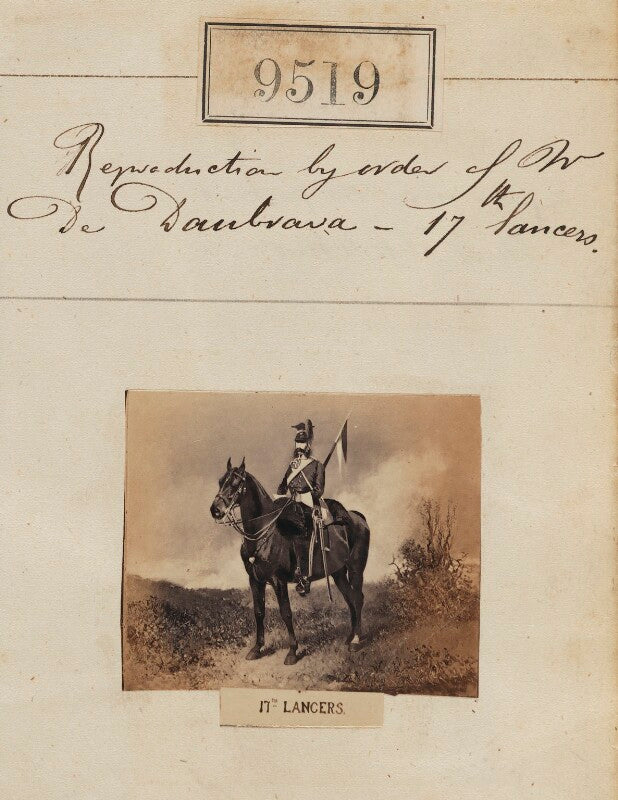 9519
Reproduction by order of Mr
De Daubrava - 17th lancers.
17TH LANCERS.